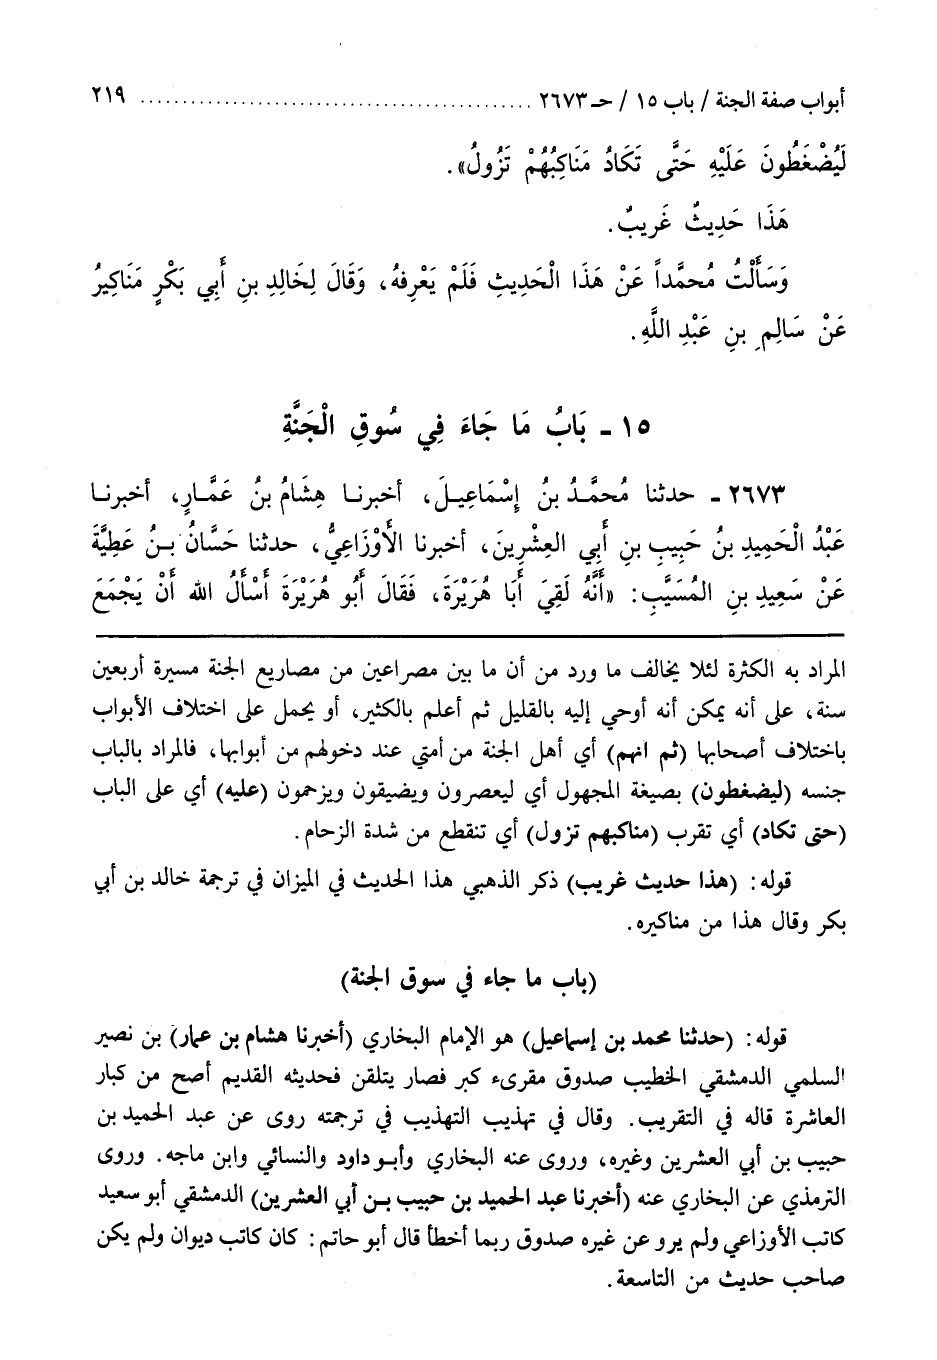 أبواب صفة الجنة / باب ١٥ / حـ ٢٦٧٣ ................................................ ٢١٩
لَيُضْغَطُونَ عَلَيْهِ حَتَّى تَكَادُ مَنَاكِبُهُمْ تَزُولُ».
هَذَا حَدِيثٌ غَرِيبٌ.
وَسَأَلْتُ مُحمَّداً عَنْ هَذَا الْحَدِيثِ فَلَمْ يَعْرِفهُ، وَقَالَ لِخَالِدِ بنِ أَبِي بَكْرٍ مَنَاكِيرُ
عَنْ سَالِمِ بنِ عَبْدِ اللَّهِ.
١٥ ـ بَابُ مَا جَاءَ فِي سُوقِ الْجَنَّةِ
٢٦٧٣ ـ حدثنا مُحمَّدُ بنُ إِسْمَاعِيلَ، أخبرنا هِشَامُ بنُ عَمَّارٍ، أخبرنا
عَبْدُ الْحَمِيدِ بنُ حَبِيبِ بنِ أَبِي العِشْرِينَ، أخبرنا الأَوْزَاعِيُّ، حدثنا حَسَّانُ بنُ عَطِيَّةَ
عَنْ سَعِيدِ بنِ المُسَيَّبِ: «أَنَّهُ لَقِيَ أَبَا هُرَيْرَةَ، فَقَالَ أَبُو هُرَيْرَةَ أَسْأَلُ الله أَنْ يَجْمَعَ
المراد به الكثرة لئلا يخالف ما ورد من أن ما بين مصراعين من مصاريع الجنة مسيرة أربعين
سنة، على أنه يمكن أنه أوحي إليه بالقليل ثم أعلم بالكثير، أو يحمل على اختلاف الأبواب
باختلاف أصحابها (ثم انهم) أي أهل الجنة من أمتي عند دخولهم من أبوابها، فالمراد بالباب
جنسه (ليضغطون) بصيغة المجهول أي ليعصرون ويضيقون ويزحمون (عليه) أي على الباب
(حتى تكاد) أي تقرب (مناكبهم تزول) أي تنقطع من شدة الزحام.
قوله: (هذا حديث غريب) ذكر الذهبي هذا الحديث في الميزان في ترجمة خالد بن أبي
بكر وقال هذا من مناكيره.
(باب ما جاء في سوق الجنة)
قوله: (حدثنا محمد بن إسماعيل) هو الإمام البخاري (أخبرنا هشام بن عمار) بن نصير
السلمي الدمشقي الخطيب صدوق مقرىء كبر فصار يتلقن فحديثه القديم أصح من كبار
العاشرة قاله في التقريب. وقال في تهذيب التهذيب في ترجمته روى عن عبد الحميد بن
حبيب بن أبي العشرين وغيره، وروى عنه البخاري وأبو داود والنسائي وابن ماجه. وروى
الترمذي عن البخاري عنه (أخبرنا عبد الحميد بن حبيب بن أبي العشرين) الدمشقي أبو سعيد
كاتب الأوزاعي ولم يرو عن غيره صدوق ربما أخطأ قال أبو حاتم: كان كاتب ديوان ولم يكن
صاحب حديث من التاسعة.